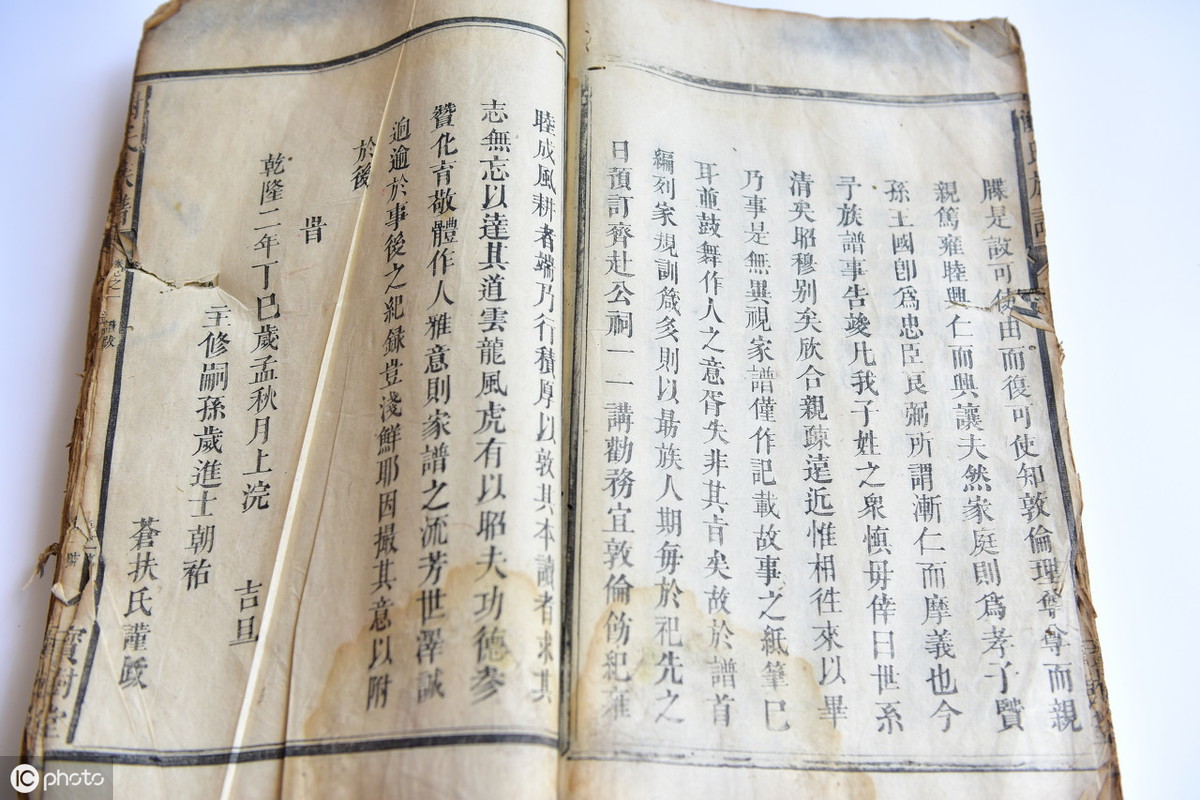 牒是故可使由而復可使知敦倫理尊尊而親
親篤雍睦興仁而興讓夫然家庭則為孝子賢
孫王國卽為忠臣良弼所謂漸仁而摩義也今
予族譜事告竣凡我子姓之衆愼毋倖曰世系
清矣昭穆别矣欣合親疎遠近惟相徃來以畢
乃事是無異視家譜僅作記載故事之紙筆已
耳並鼓舞作人之意胥失非其旨矣故於譜首
編列家規訓箴多則以朂族人期每於祀先之
日預訂齊赴公祠一一講勸務宜敦倫飭紀雍
睦成風耕者端乃行積厚以敦其本讀者求其
志無忘以達其道雲龍風虎有以昭夫功德參
贊化育敬體作人雅意則家譜之流芳世澤誠
迥逾於事後之紀録豈淺鮮耶因撮其意以附
於後
旹
乾隆二年丁巳歲孟秋月上浣 吉旦
主修嗣孫歲進士朝祐
蒼扶氏謹䟦
寶樹堂
IC photo